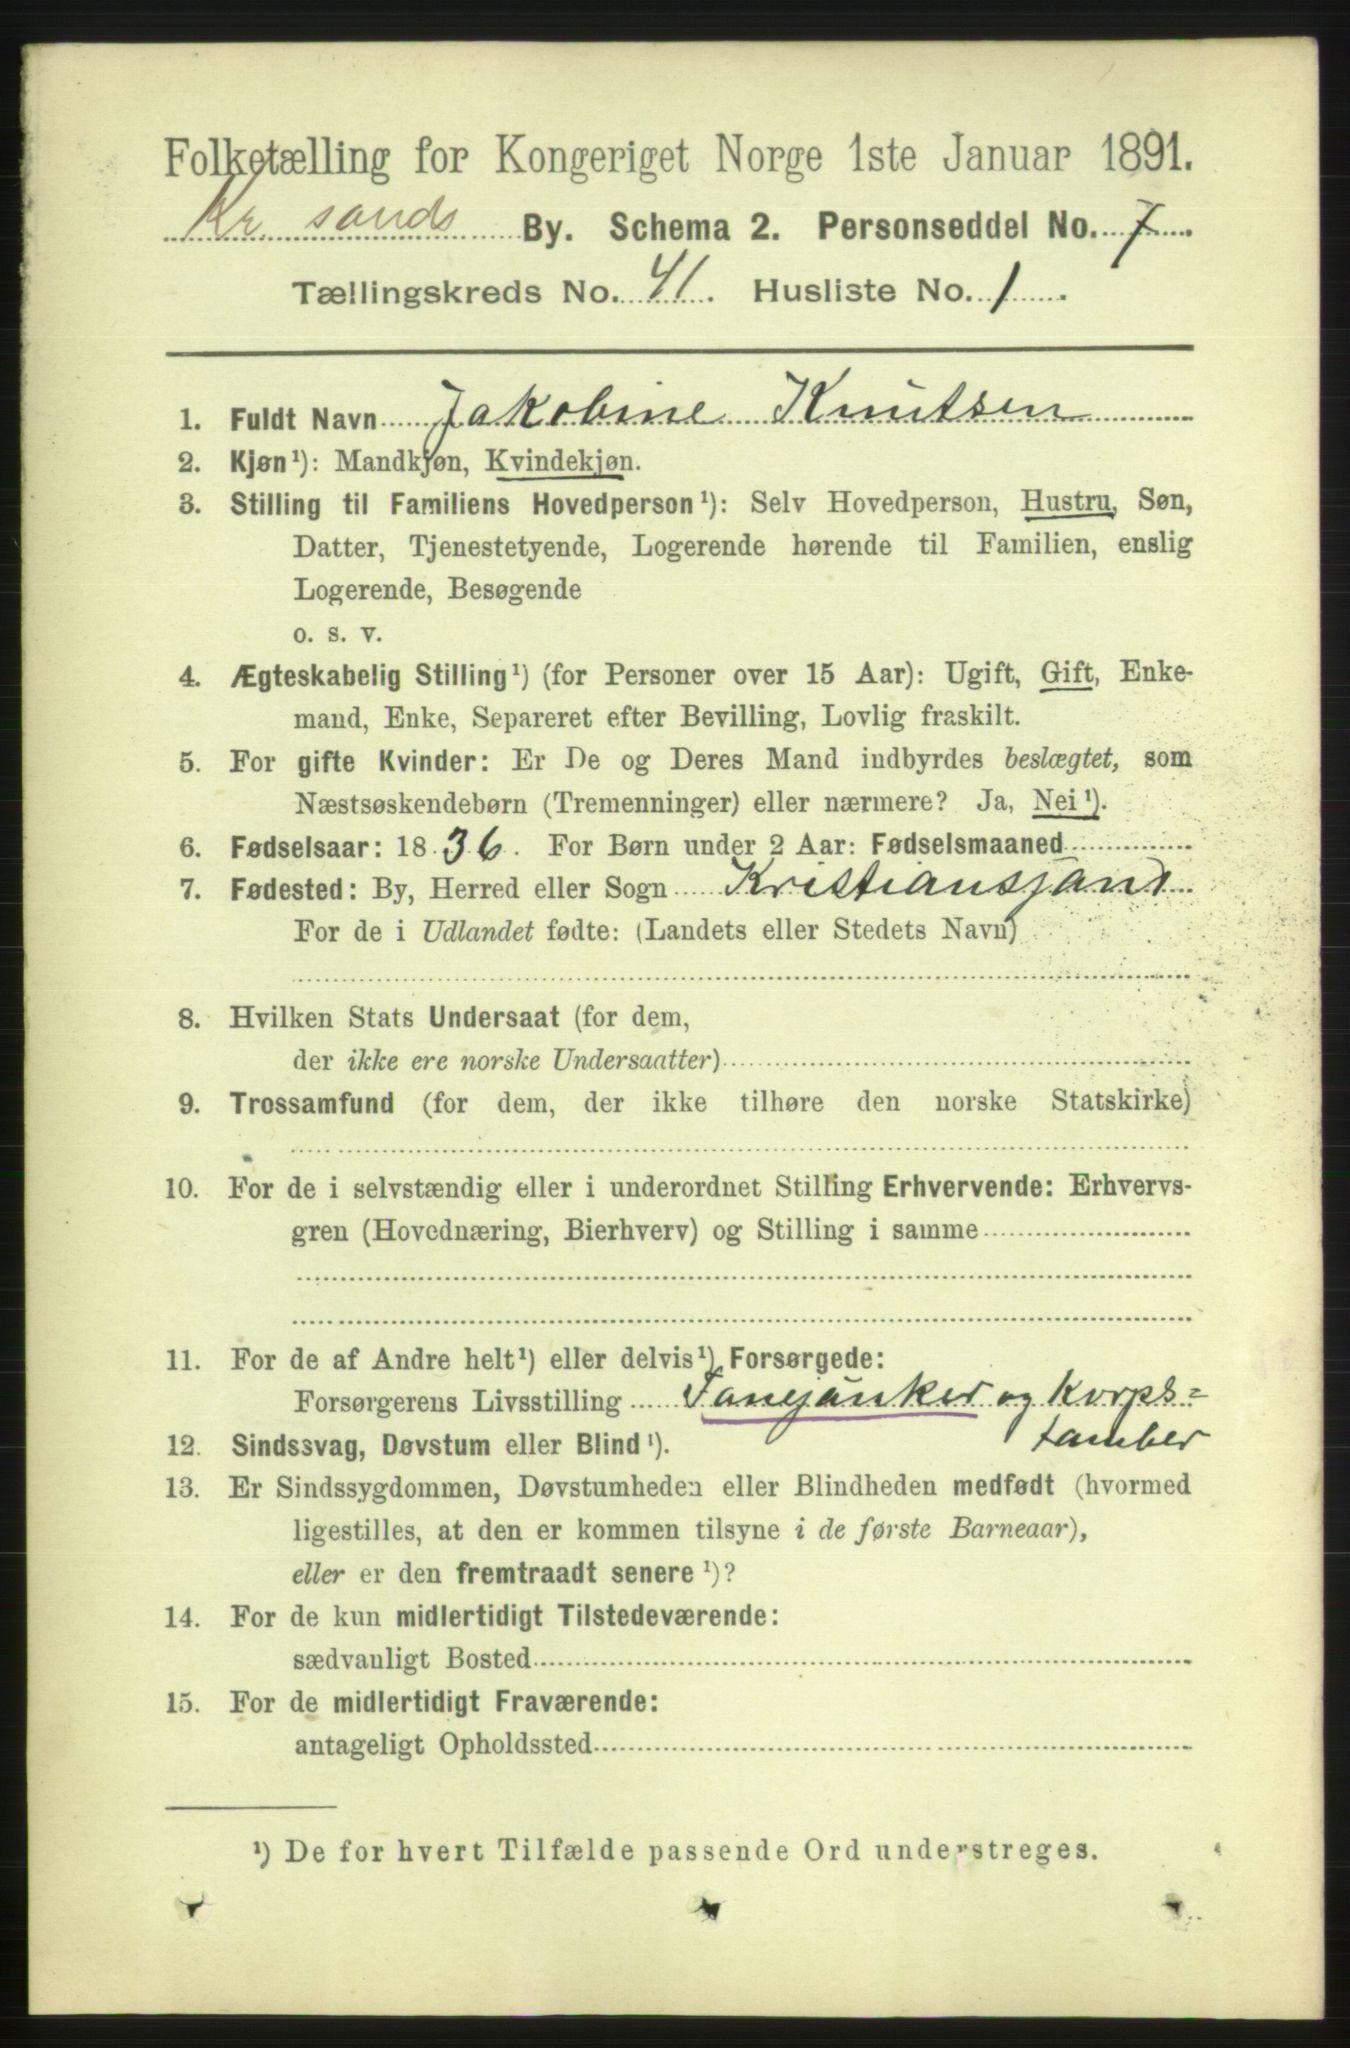 Folketælling for Kongeriget Norge 1ste Januar 1891.
Kr. sands By. Schema 2. Personseddel No. 7.
Tællingskreds No. 41. Husliste No. 1.
1. Fuldt Navn Jakobine Knutsen
2. Kjøn¹): Mandkjøn, Kvindekjøn.
3. Stilling til Familiens Hovedperson¹): Selv Hovedperson, Hustru, Søn,
Datter, Tjenestetyende, Logerende hørende til Familien, enslig
Logerende, Besøgende
o. s. v.
4. Ægteskabelig Stilling¹) (for Personer over 15 Aar): Ugift, Gift, Enke-
mand, Enke, Separeret efter Bevilling, Lovlig fraskilt.
5. For gifte Kvinder: Er De og Deres Mand indbyrdes beslægtet, som
Næstsøskendebørn (Tremenninger) eller nærmere? Ja, Nei¹).
6. Fødselsaar: 1836. For Børn under 2 Aar: Fødselsmaaned
7. Fødested: By, Herred eller Sogn Kristianssand
For de i Udlandet fødte: (Landets eller Stedets Navn)
8. Hvilken Stats Undersaat (for dem,
der ikke ere norske Undersaatter)
9. Trossamfund (for dem, der ikke tilhøre den norske Statskirke)
10. For de i selvstændig eller i underordnet Stilling Erhvervende: Erhvervs-
gren (Hovednæring, Bierhverv) og Stilling i samme
11. For de af Andre helt¹) eller delvis¹) Forsørgede:
Forsørgerens Livsstilling Fanejunker og Korps=
tambur
12. Sindssvag, Døvstum eller Blind¹).
13. Er Sindssygdommen, Døvstumheden eller Blindheden medfødt (hvormed
ligestilles, at den er kommen tilsyne i de første Barneaar),
eller er den fremtraadt senere¹)?
14. For de kun midlertidigt Tilstedeværende:
sædvanligt Bosted
15. For de midlertidigt Fraværende:
antageligt Opholdssted
¹) De for hvert Tilfælde passende Ord understreges.